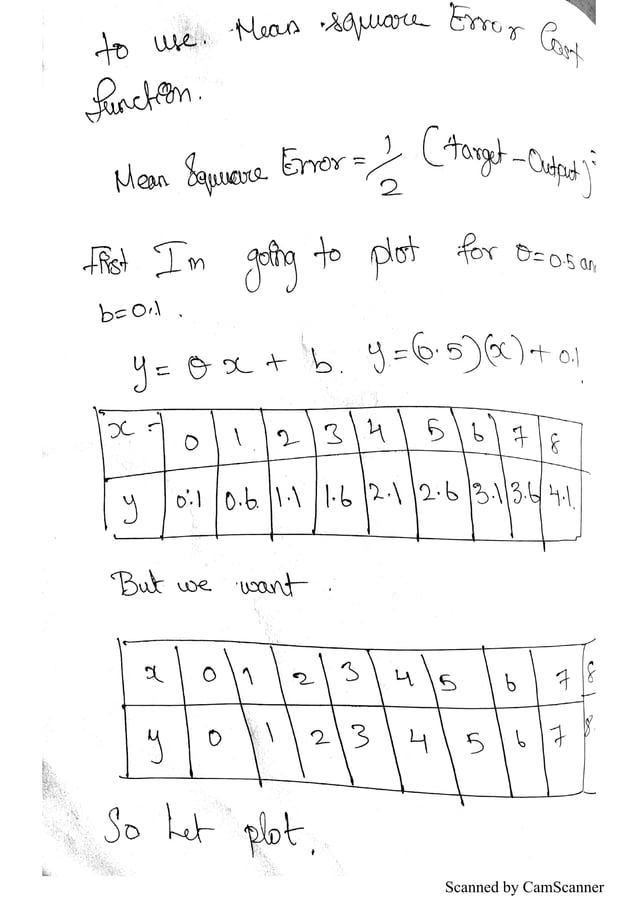 to use. Mean square Error Cost
function.
Mean Square Error = 1/2 (target - Output)
First Im going to plot for θ=0.5 an
b=0.1.
y = θx + b. y=(0.5)(x)+0.1
x = 0 1 2 3 4 5 6 7 8
y 0.1 0.6 1.1 1.6 2.1 2.6 3.1 3.6 4.1.
But we want.
x 0 1 2 3 4 5 6 7 8
y 0 1 2 3 4 5 6 7 8
So Let plot.
Scanned by CamScanner